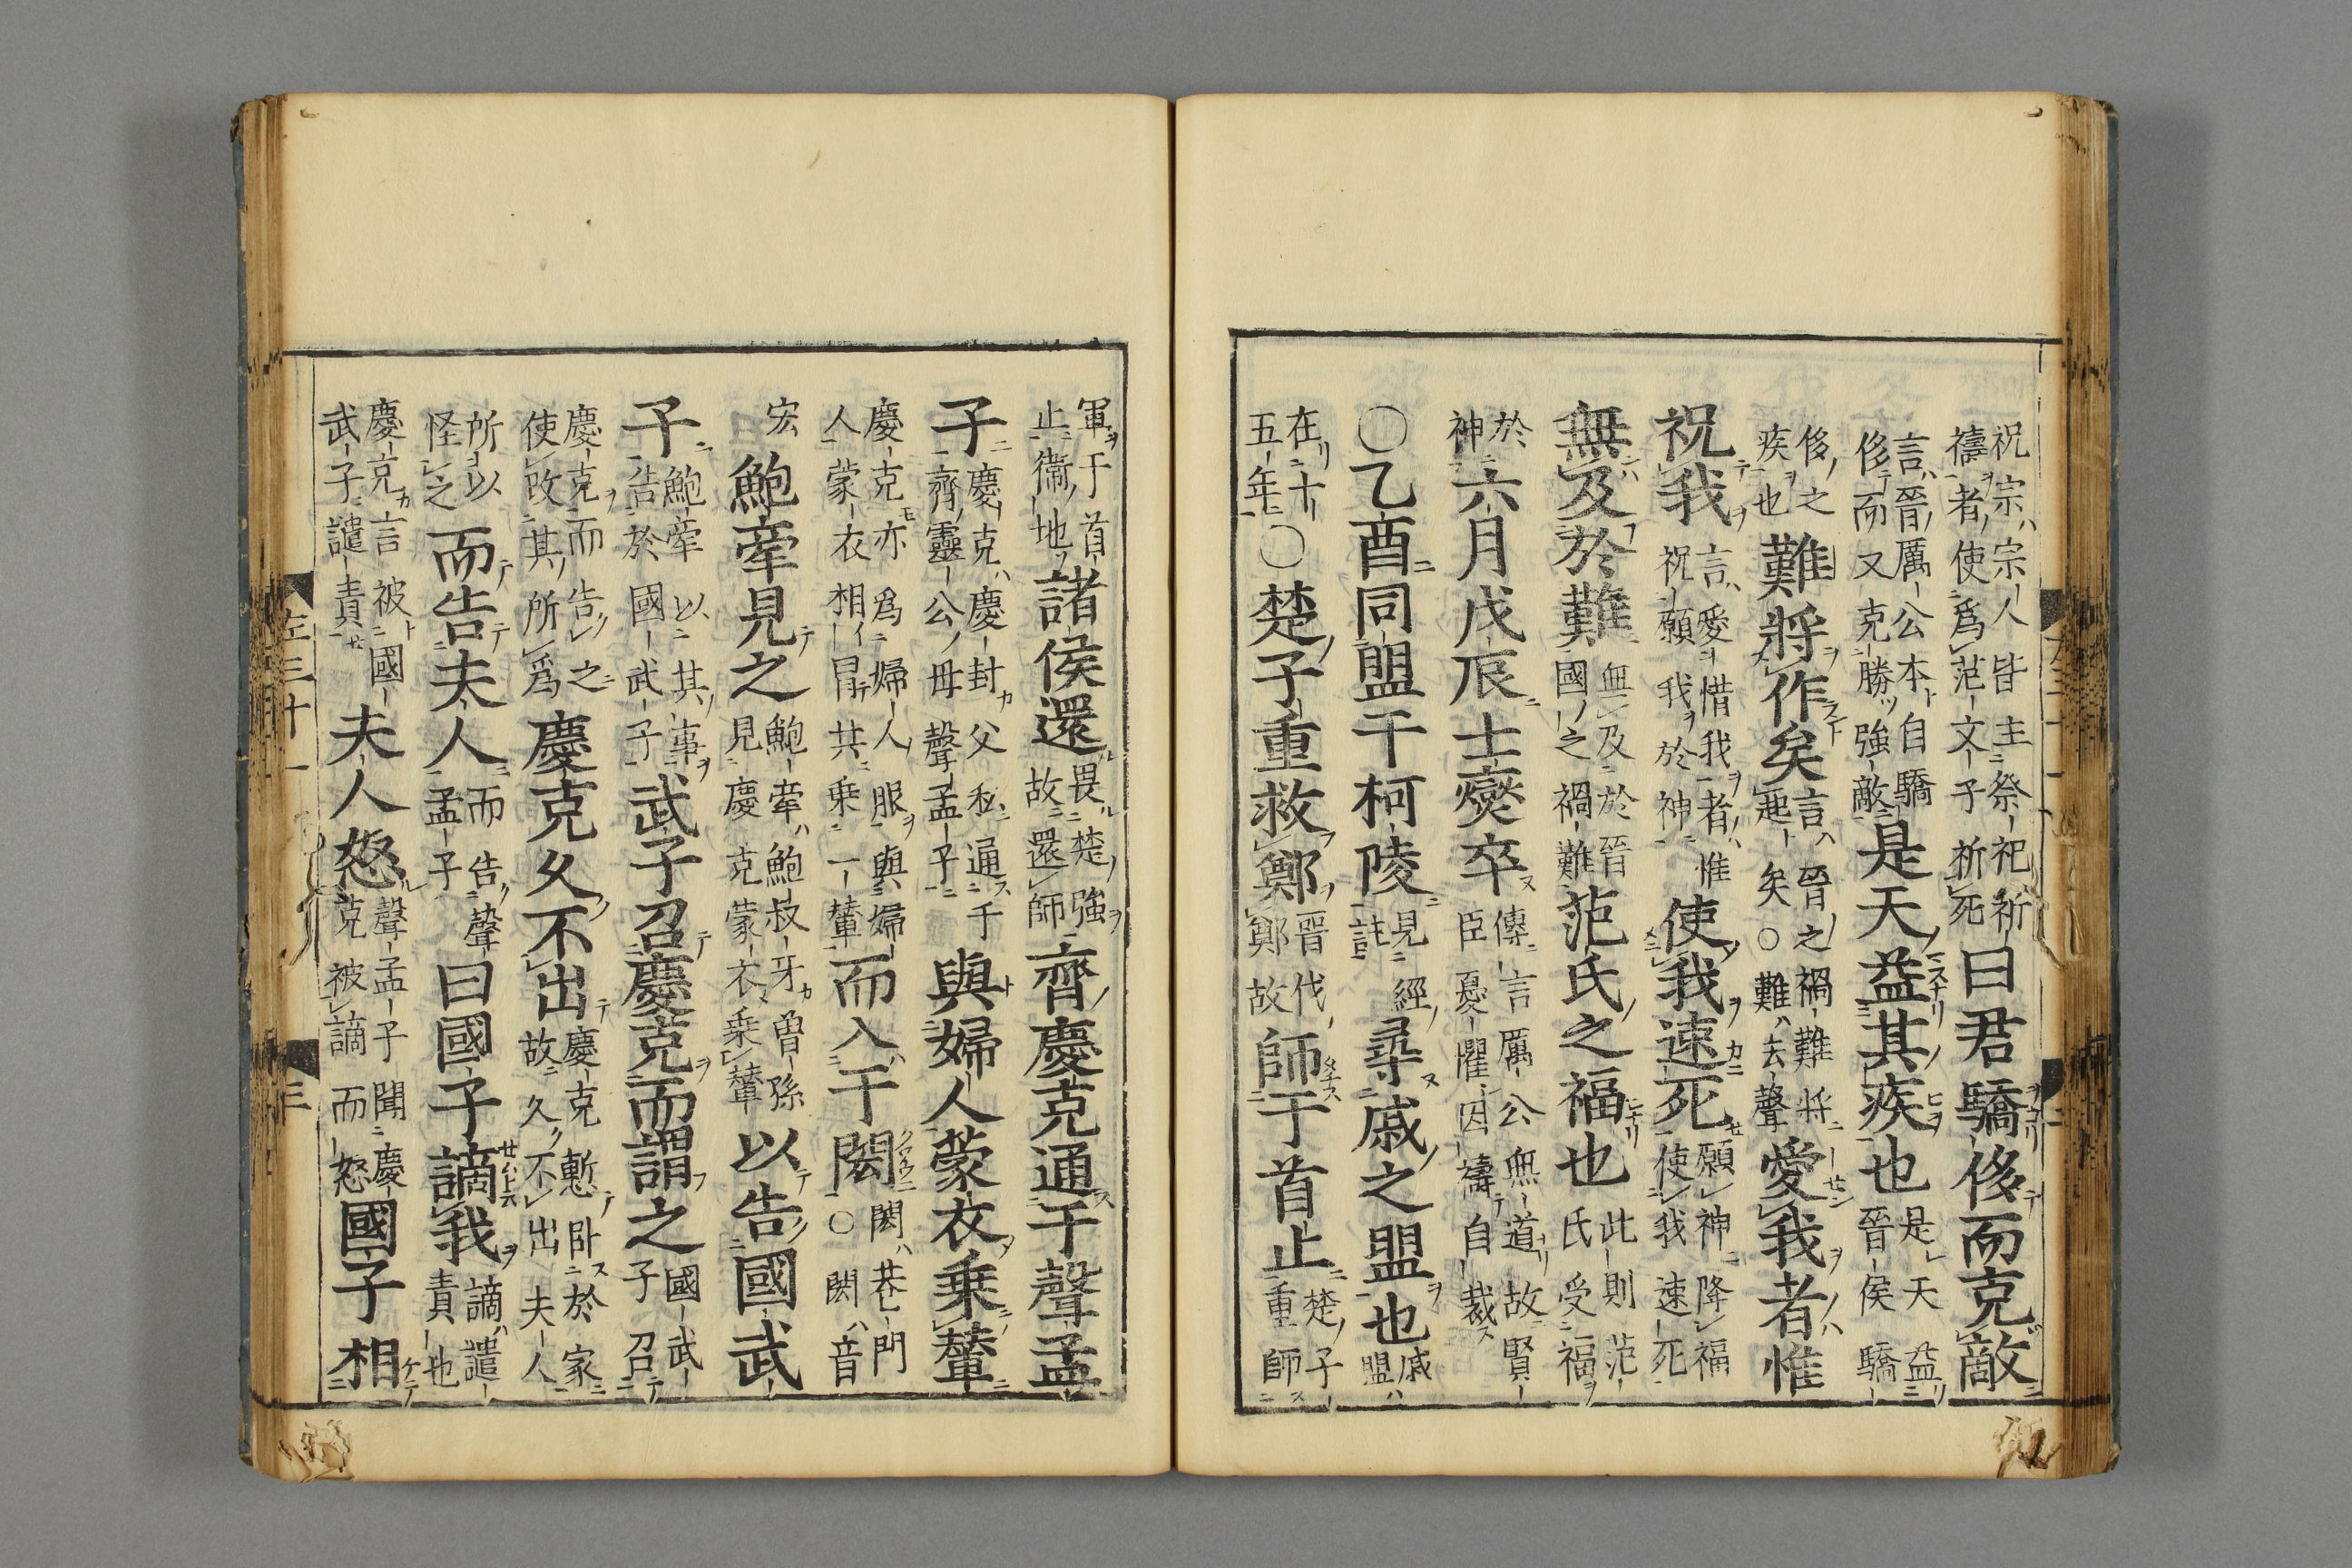 祝宗宗人皆主祭祀祈禱者使爲范文子祈死曰君驕侈而克敵
言晉厲公本自驕侈而又克勝強敵是天益其疾也是天益晉侯驕
侈之疾也難將作矣言晉之禍難將起矣○難去聲愛我者惟
祝我言愛惜我者惟祝願我於神使我速死願神降福使我速死
無及於難無及於晉國之禍難范氏之福也此則范氏受福
於神六月戊辰士燮卒傳言厲公無道故賢臣憂懼因禱自裁
○乙酉同盟于柯陵見經註尋戚之盟也戚盟
在十五年○楚子重救鄭晉伐鄭故師于首止楚子重師
軍于首止衞地諸侯還畏楚強故還師齊慶克通于聲孟
子慶克慶封父私通于齊靈公母聲孟子與婦人蒙衣乗輦
慶克亦爲婦人服與婦人蒙衣相冒共乗一輦而入于閎閎巷門○閎音
宏鮑牽見之鮑牽鮑叔牙曾孫見慶克蒙衣乗輦以告國武
子鮑牽以其事告於國武子武子召慶克而謂之國武子召
慶克而告之使改其所爲慶克久不出慶克慙臥於家故久不出夫人
所以怪之而告夫人而告聲孟子曰國子謫我謫譴責也
慶克言被國武子譴責夫人怒聲孟子聞慶克被謫而怒國子相
左三十一 三